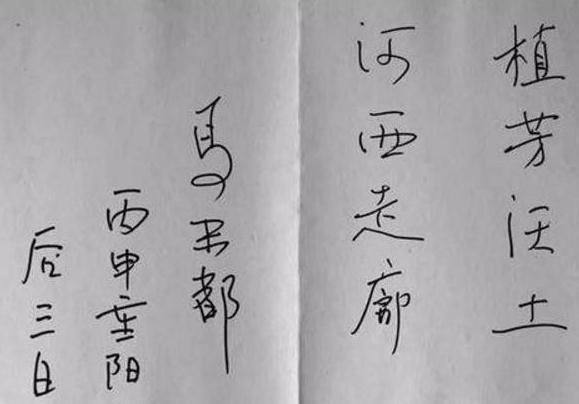 植芳沃土
河西走廊
马未都
丙申重阳
后三日